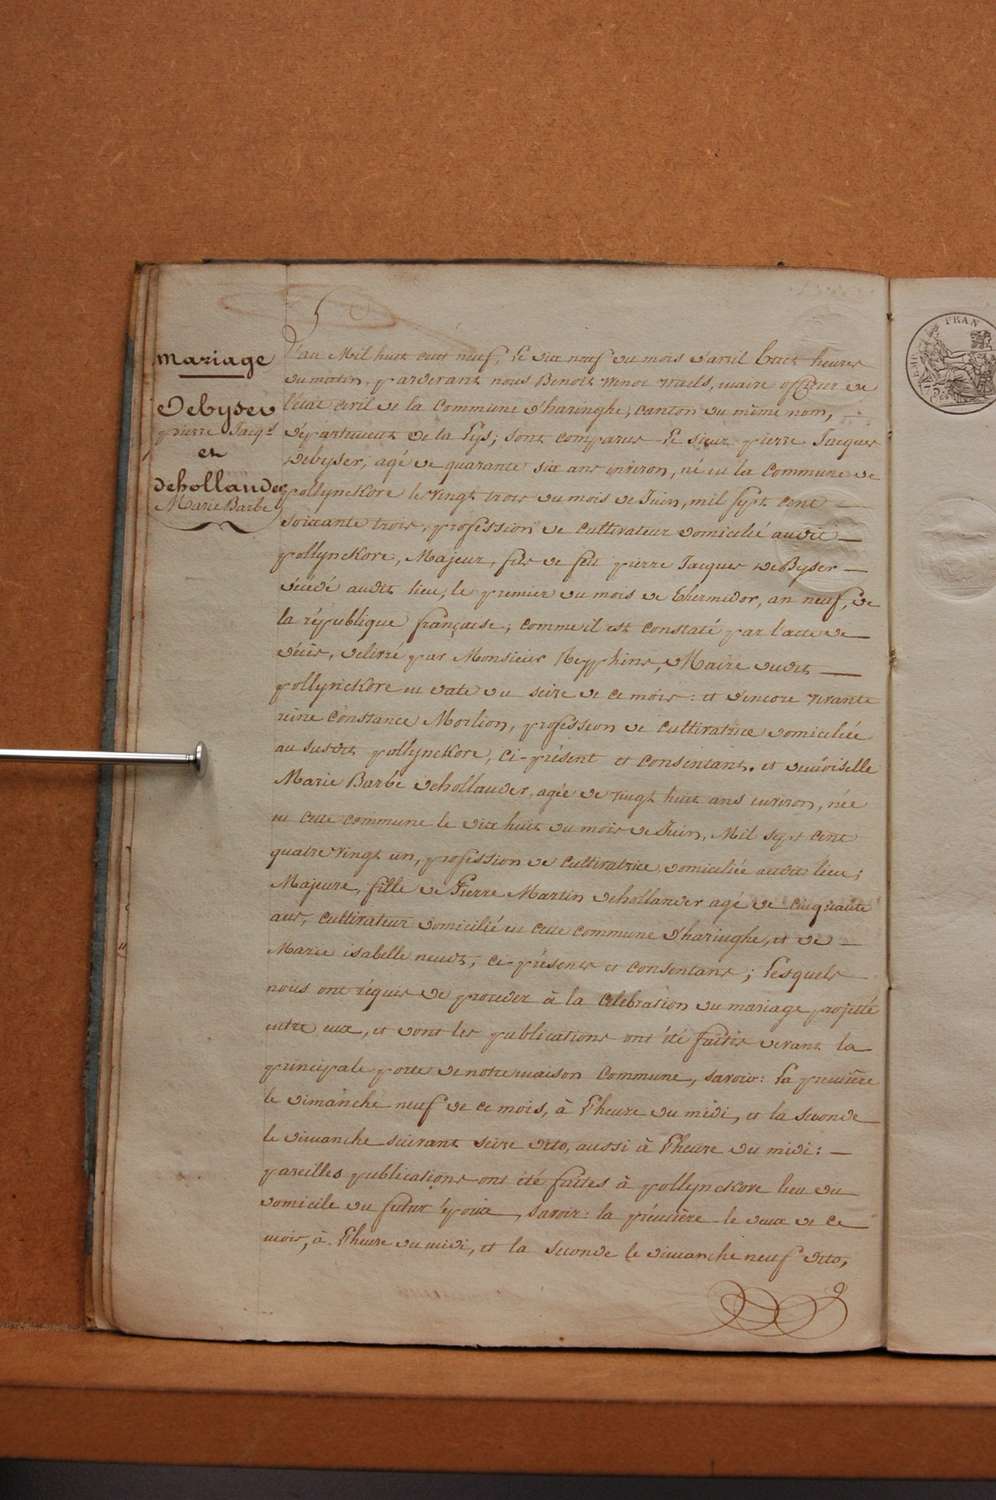 mariage
Debyser
pierre Jacqs
et
dehollander
Marie Barbe
L'an Mil huit cent neuf, le dix neuf du mois d'avril huit heures
du matin, pardevant nous Benoit Wraels, maire officier de
l'état civil de la Commune d'haringhe, canton du même nom,
département de la Lys; sont comparus le sieur pierre Jacques
Debyser, agé de quarante six ans environ, né en la Commune de
pollynckove le vingt trois du mois de Juin, mil sept cent
soixante trois, profession de Cultivateur domicilié audit
pollynckove, Majeur, fils de feu pierre Jacques DeByser
décédé audit lieu, le premier du mois de thermidor, an neuf, de
la république française; comme il est constaté par l'acte de
décès, délivré par Monsieur Maire dudit
pollynckove en date du seize de ce mois: et d'encore vivante
reine Constance Morlion, profession de Cultivatrice domiciliée
au susdit pollynckove, ci-présent et consentant. et demoiselle
Marie Barbe dehollander, agée de vingt huit ans environ, née
en cette commune le dix huit du mois de Juin, Mil sept cent
quatre vingt un, profession de Cultivatrice domiciliée audit lieu;
Majeure, fille de Pierre Martin dehollander agé de cinquante
ans, cultivateur domicilié en cette commune d'haringhe, et de
Marie isabelle neudt, ci-présents et consentans; Lesquels
nous ont requis de proceder à la célébration du mariage projetté
entre eux, et dont les publications ont été faites devant la
principale porte de notre maison Commune, savoir: La première
le dimanche neuf de ce mois, à l'heure du midi, et la seconde
le dimanche suivant seize dito, aussi à l'heure du midi:
pareilles publications ont été faites à pollynckove lieu du
domicile du futur Epoux, savoir: la première le deux de ce
mois, à l'heure du midi, et la seconde le dimanche neuf dito,
FRAN